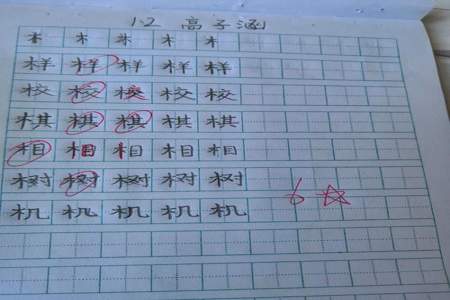 12 高子涵
木 木 木 木 木
样 样 样 样 样
校 校 校 校 校
棋 棋 棋 棋 棋
相 相 相 相 相
树 树 树 树 树
机 机 机 机 机
6 ☆